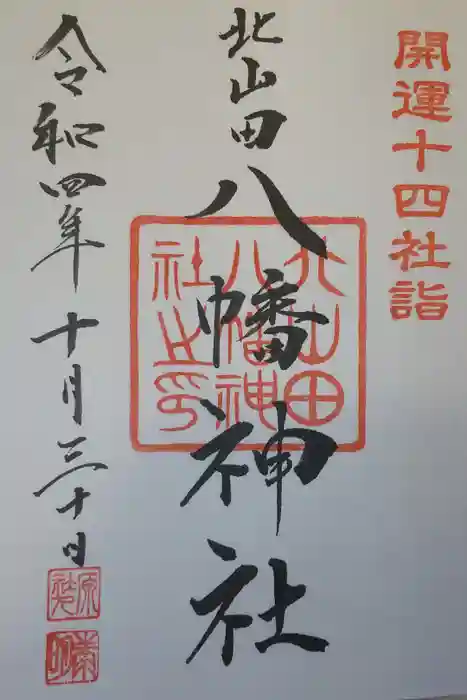 開運十四社詣
北山田八幡神社
北山田八幡神社之印
令和四年十月三十日